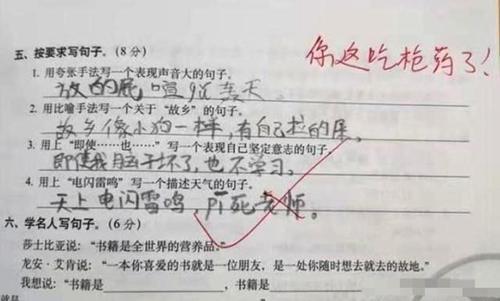 你这吃枪药了!
五、按要求写句子。(8分)
1. 用夸张手法写一个表现声音大的句子。
放的屁响张轰天。
2. 用比喻手法写一个关于“故乡”的句子。
故乡像小狗一样,有自己拉的屎。
3. 用上“即使……也……”写一个表现自己坚定意志的句子。
即使我脑子坏了,也不学习。
4. 用上“电闪雷鸣”写一个描述天气的句子。
天上电闪雷鸣,俨死老师。
六、学名人写句子。(6分)
莎士比亚说:“书籍是全世界的营养品。”
龙安·艾肯说:“一本你喜爱的书就是一位朋友,是一处你随时想去就去的故地。”
我想说:“书籍是,书籍是